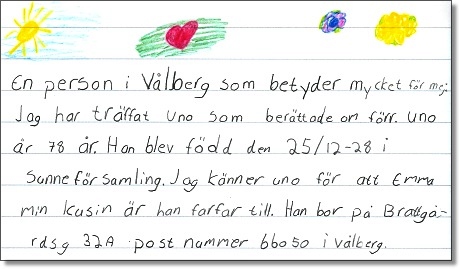 En person i Vålberg som betyder mycket för mej.
Jag har träffat Uno som berättade om förr. Uno
är 78 år. Han blev född den 25/12-28 i
Sunne församling. Jag känner uno för att Emma
min kusin är han farfar till. Han bor på Brattgå-
rdsg 32A post nummer 66050 i vålberg.